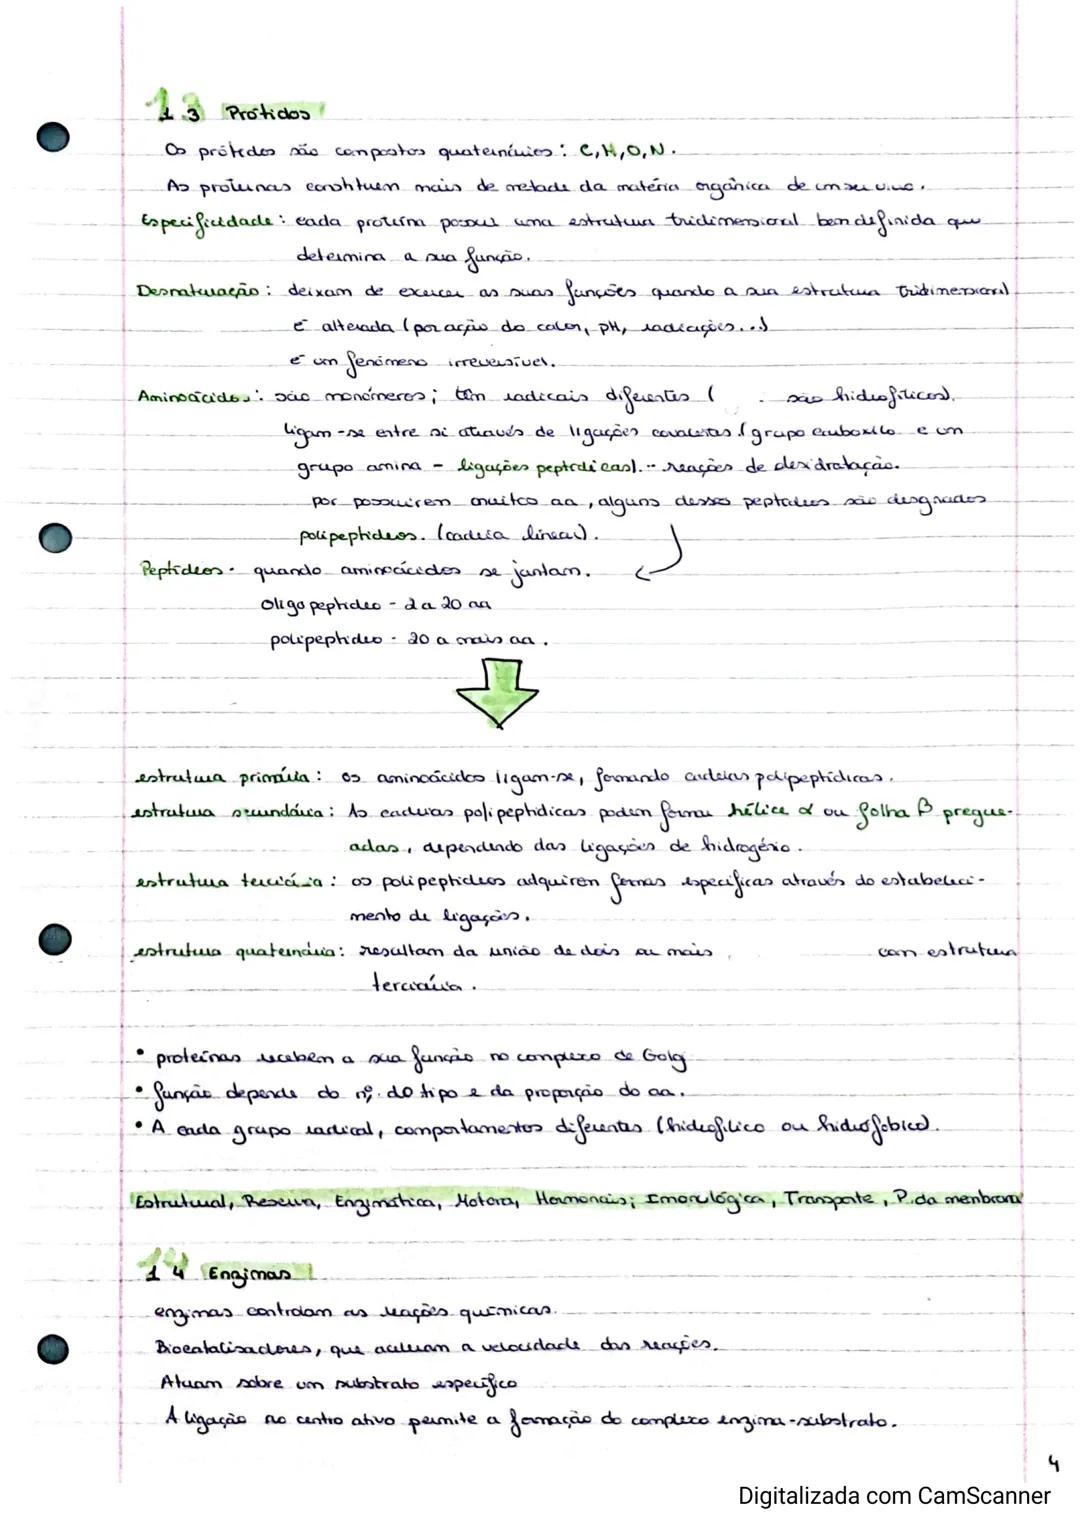 1.3 Prótidos
Os prótidos são compostos quaternários: C, H, O, N.
As proteínas constituem mais de metade da matéria orgânica de um ser vivo.
Especificidade: cada proteína possui uma estrutura tridimensional bem definida que
determina a sua função.
Desnaturação: deixam de exercer as suas funções quando a sua estrutura tridimensional
é alterada (por ação do calor, pH, radiações...)
é um fenómeno irreversível.
Aminoácidos: são monómeros; têm radicais diferentes ( são hidrofílicos).
ligam-se entre si através de ligações covalentes (grupo carboxilo e um
grupo amina - ligações peptídicas). reações de desidratação.
por possuirem muitos aa, alguns desses peptídeos são desgnados
polipeptídeos. (cadeia linear).
Peptídeos - quando aminoácidos se juntam.
Oligopeptídeo - 2 a 20 aa
polipeptídeo - 20 a mais aa.
estrutura primária: os aminoácidos ligam-se, formando cadeias polipeptídicas.
estrutura secundária: As cadeias polipeptídicas podem formar hélice α ou folha β pregue-
adas, dependendo das ligações de hidrogénio.
estrutura terciária: os polipeptídeos adquirem formas específicas através do estabeleci-
mento de ligações.
estrutura quaternária: resultam da união de dois ou mais, com estrutura
terciária.
• proteínas recebem a sua função no complexo de Golg
• função depende do nº. do tipo e da proporção do aa.
• A cada grupo radical, comportamentos diferentes (hidrofílico ou hidrofóbico).
Estrutural, Reserva, Enzimática, Motora, Hormonais; Imonológica, Transporte, P. da membrana
1.4 Enzimas
enzimas controlam as reações químicas.
Biocatalisadores, que aceleram a velocidade das reações.
Atuam sobre um substrato específico
A ligação no centro ativo permite a formação do complexo enzima-substrato.
4
Digitalizada com CamScanner